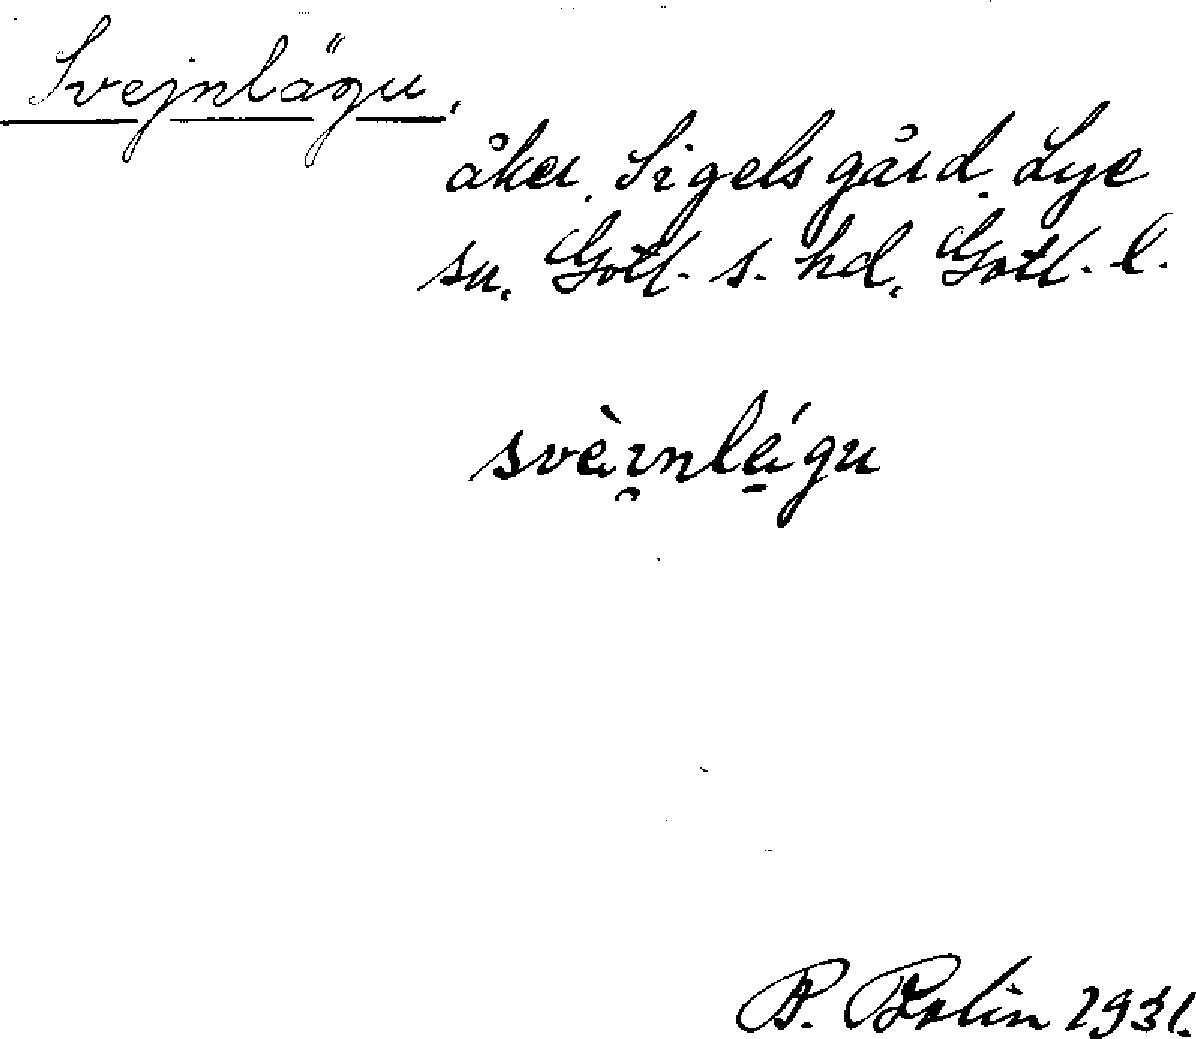 Svejnlägu,
åker, Sigelsgård, Lye
sn, Gotl. s. hd, Gotl. l.
svèi̯nlé̱gu
B. Bolin 1931.